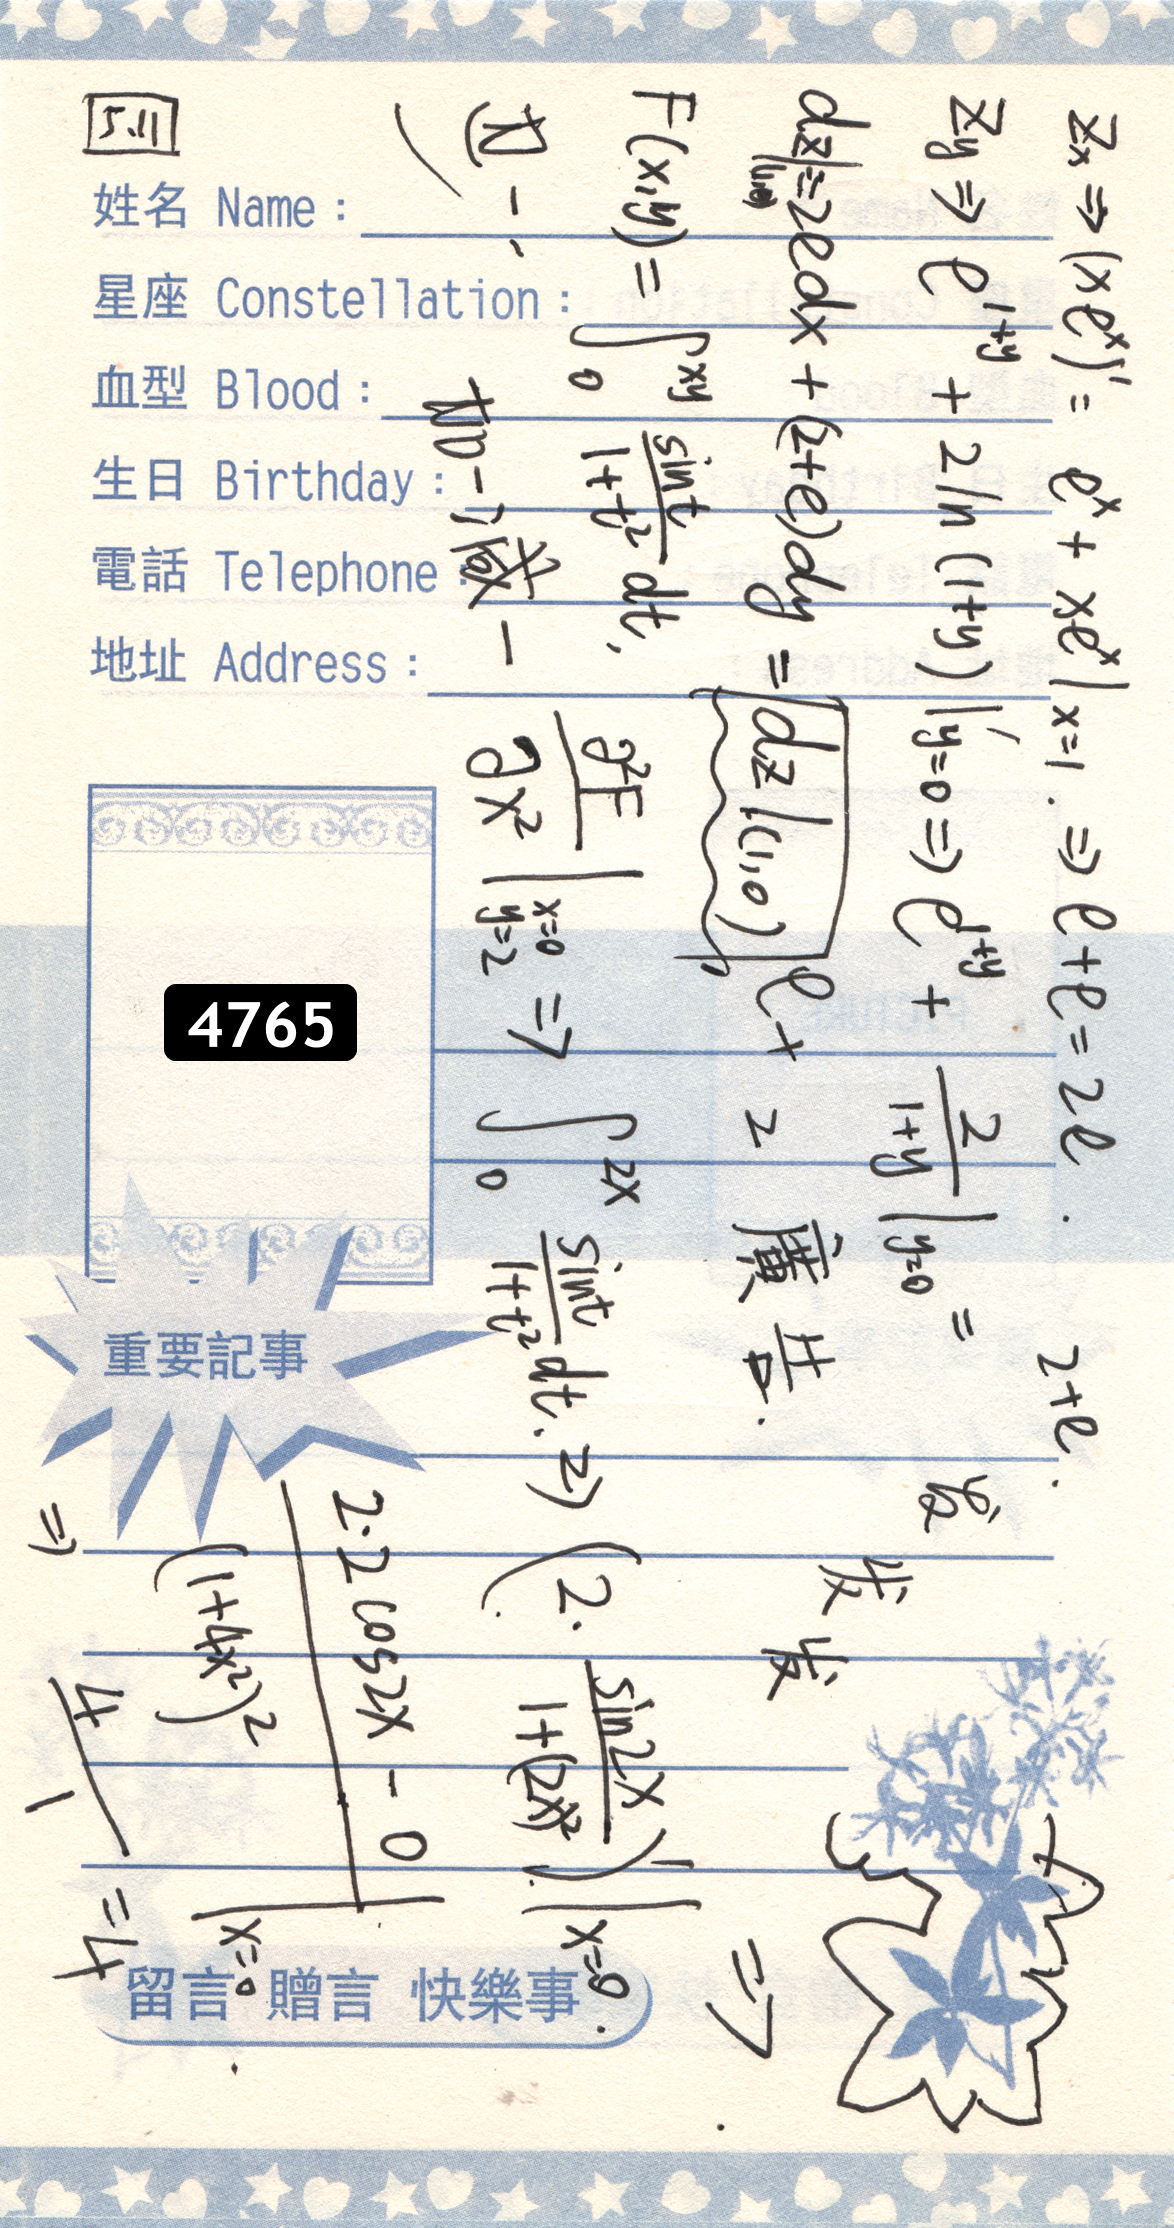 姓名 Name :
星座 Constellation :
血型 Blood :
生日 Birthday :
電話 Telephone :
地址 Address :
4765
重要記事
留言 贈言 快樂事
Zx => (xe^x)' = e^x + xe^x | x=1 . => e+e = 2e .
Zy => e^1+y + 2ln (1+y) |'y=0 => e^1+y + 2/1+y | y=0 = 2+e .
dz|(1,0) = 2edx + (2+e)dy = dz|(1,0) e+2
F(x,y) = ∫0^xy sint/1+t² dt, ∂²F/∂x² | x=0 y=2 => ∫0^2x sint/1+t² dt. => (2· sin2x/1+(2x)²)' | x=0 =>
2·2cos2x - 0/(1+4x²)² | x=0
=> 4/1 = 4